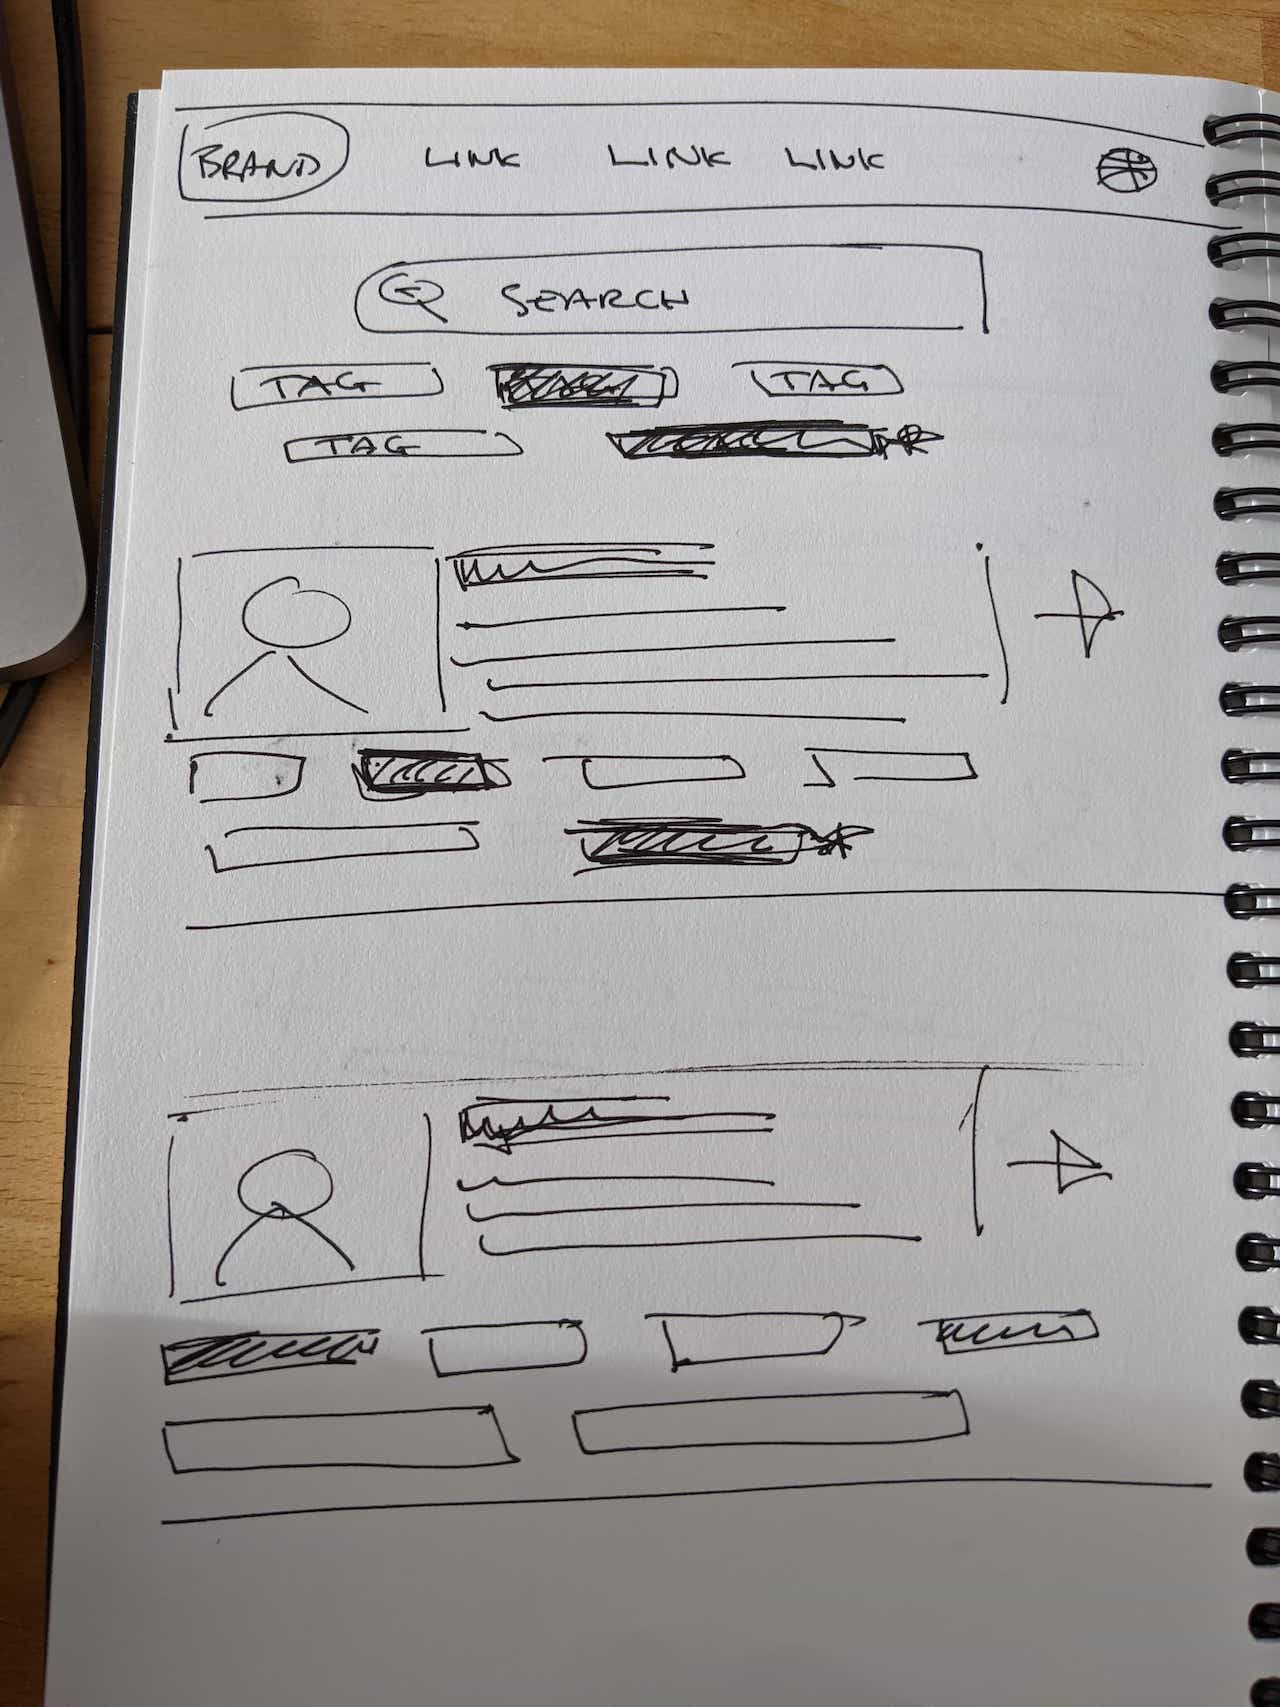 BRAND LINK LINK LINK
SEARCH
TAG TAG
TAG